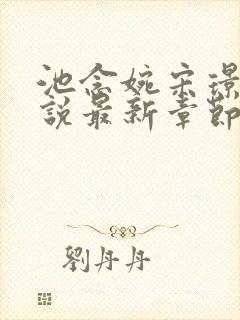 池念婉宋璟
說最新章節
劉丹丹